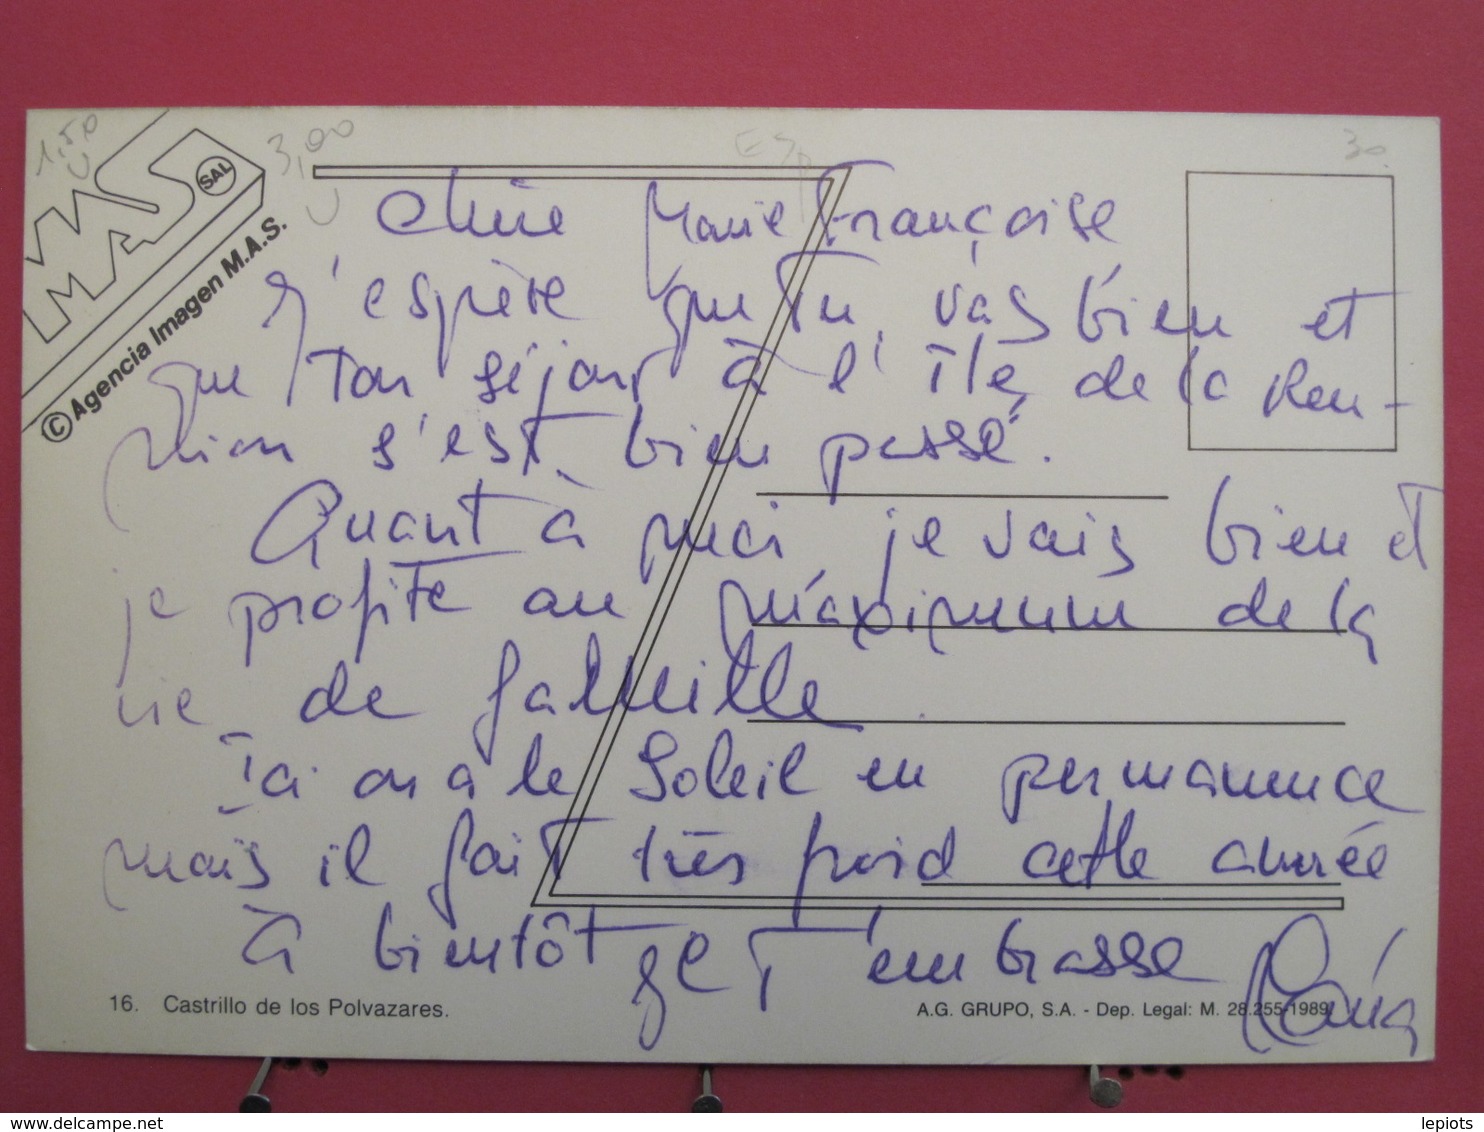 1,50
3,00
ESP
30
MAS
SAL
© Agencia Imagen M.A.S.
Chère Marie Françoise
J'espère que Tu vas bien et
que Ton séjour à l'île de la Réu-
nion s'est bien passé.
Quant à moi je vais bien et
je profite au maximum de la
vie de famille.
Ici on a le Soleil en permanence
mais il fait très froid cette année
à bientôt je T'embrasse
16. Castrillo de los Polvazares.
A.G. GRUPO, S.A. - Dep. Legal: M. 28.255-1989
www.delcampe.net
lepiots